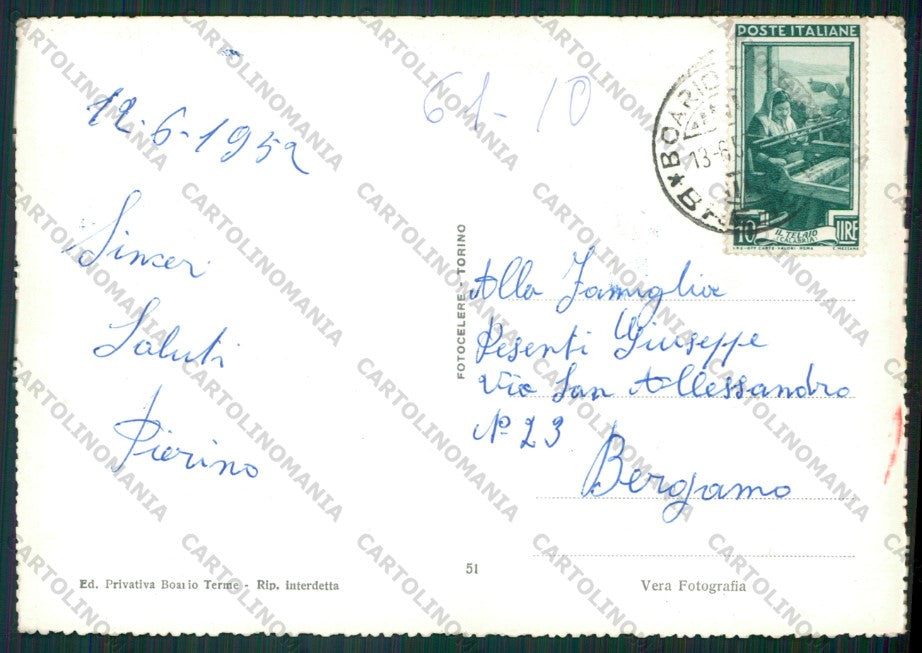 12-6-1952
Sinceri
Saluti
Pierino
61-10
BOARIO
13-6
POSTE ITALIANE
10 LIRE
IL TELAIO
(CALABRIA)
I.P.S.-OFF. CARTE-VALORI-ROMA
C. MEZZANA
FOTOCELERE - TORINO
Alla Famiglia
Pesenti Giuseppe
Via San Allessandro
Nº 23
Bergamo
51
Ed. Privativa Boario Terme - Rip. interdetta
Vera Fotografia
CARTOLINOMANIA